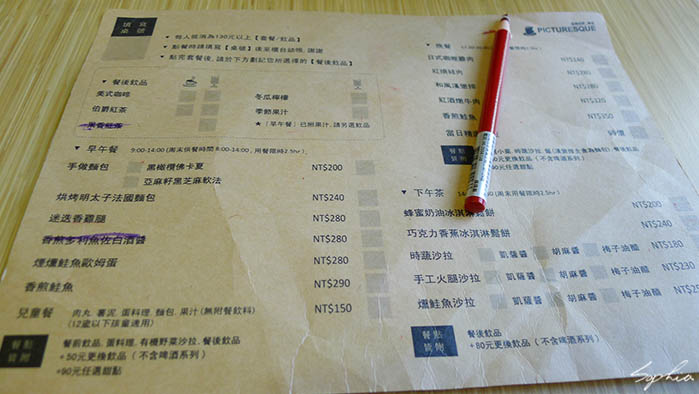 填寫
桌號
每人低消為130元以上【套餐/飲品】
點餐時請填寫【桌號】後至櫃台結帳, 謝謝
點完套餐後, 請於下方劃記您所選擇的【餐後飲品】
餐後飲品
美式咖啡
伯爵紅茶
冬瓜檸檬
季節果汁
★「早午餐」已附果汁, 請另選飲品
早午餐 9:00-14:00 (周末供餐時間 8:00-14:00, 用餐限時2.5hr)
手做麵包 黑橄欖佛卡夏 NT$200
亞麻籽黑芝麻軟法
烘烤明太子法國麵包 NT$240
迷迭香雞腿 NT$280
香煎多利魚佐白酒醬 NT$280
煙燻鮭魚歐姆蛋 NT$280
香煎鮭魚 NT$290
兒童餐 肉丸 薯泥, 蛋料理, 麵包, 果汁 (無附餐飲料) NT$150
(12歲以下孩童適用)
餐點
皆附
餐前飲品, 蛋料理, 有機野菜沙拉, 餐後飲品
+50元更換飲品 (不含啤酒系列)
+90元任選甜點
PICTURESQUE
晚餐
日式咖哩雞肉
紅燒豬肉
和風漢堡排
紅酒燉牛肉
香煎鮭魚
當日精
時價
餐點
皆附
0元更換飲品 (不含啤酒系列)
0元任選甜點
下午茶
(周末用餐限時2.5hr)
蜂蜜奶油冰淇淋鬆餅 NT$200
巧克力香蕉冰淇淋鬆餅 NT$240
時蔬沙拉 凱薩醬 胡麻醬 梅子油醋 NT$180
手工火腿沙拉 凱薩醬 胡麻醬 梅子油醋 NT$230
燻鮭魚沙拉 凱薩醬 胡麻醬 梅子油醋
餐點
皆附
餐後飲品
+80元更換飲品 (不含啤酒系列)
Sophia